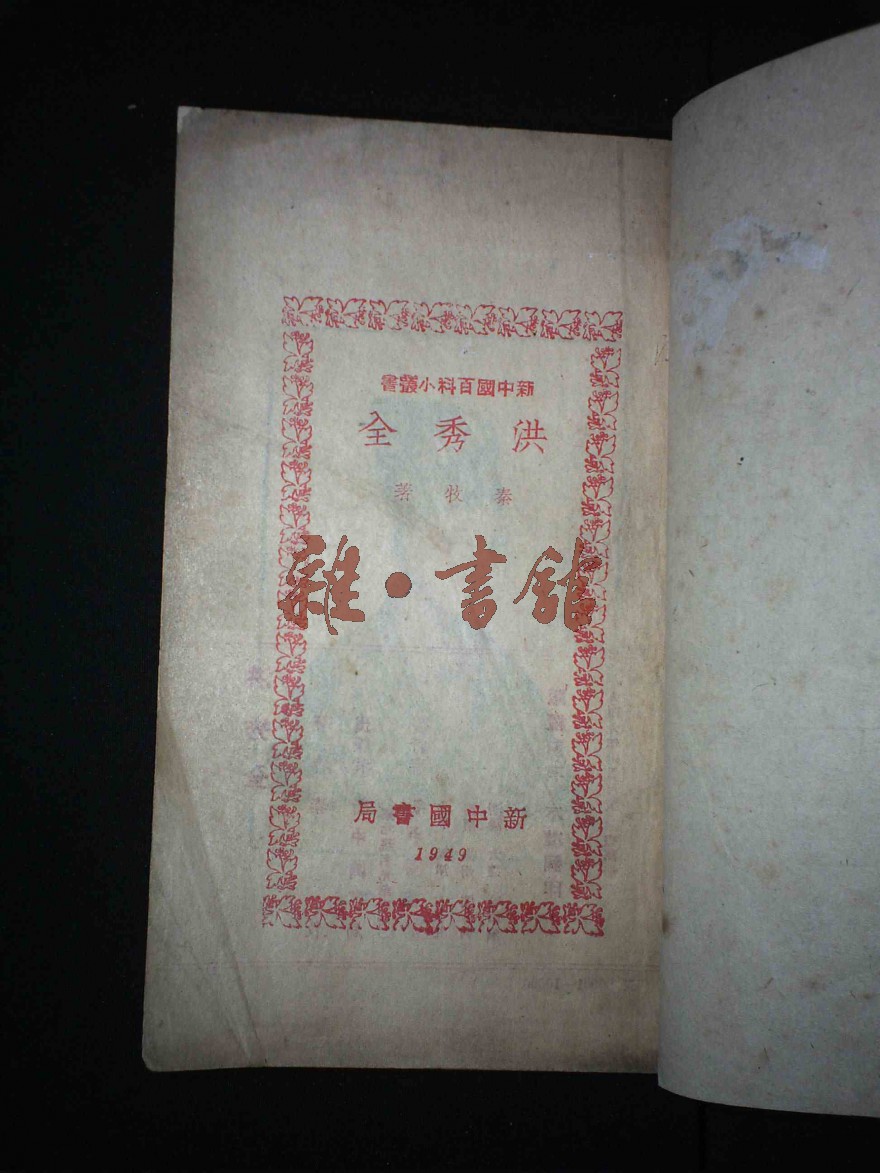 新中國百科小叢書
洪秀全
秦牧著
雜·書館
新中國書局
1949